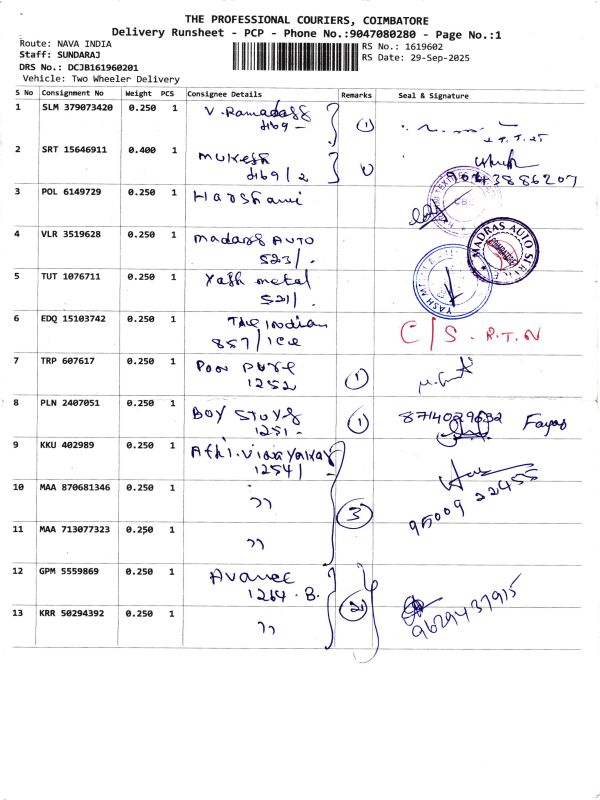 THE PROFESSIONAL COURIERS, COIMBATORE
Delivery Runsheet - PCP - Phone No.:9047080280 - Page No.:1
Route: NAVA INDIA
RS No.: 1619602
Staff: SUNDARAJ
RS Date: 29-Sep-2025
DRS No.: DCJB161960201
Vehicle: Two Wheeler Delivery
S No Consignment No Weight PCS Consignee Details Remarks Seal & Signature
1 SLM 379073420 0.250 1 V. Ramadass
469 - 1
2 SRT 15646911 0.400 1 Mukesh
469/2
3 POL 6149729 0.250 1 Harshami
4 VLR 3519628 0.250 1 Madrass AUTO
523/.
MADRAS AUTO SERVICE
5 TUT 1076711 0.250 1 Yash metal
521/.
YASH
6 EDQ 15103742 0.250 1 The Indian C/S. R.T.N
857/ICE
7 TRP 607617 0.250 1 Poor 1
1252
8 PLN 2407051 0.250 1 BOY 1 Fayas
1251-
9 KKU 402989 0.250 1 Athi.Vinayakar
1254/
95009 22455
10 MAA 870681346 0.250 1 " 3
11 MAA 713077323 0.250 1 "
12 GPM 5559869 0.250 1 Avanee
1264.B. 2
9629437915
13 KRR 50294392 0.250 1 "